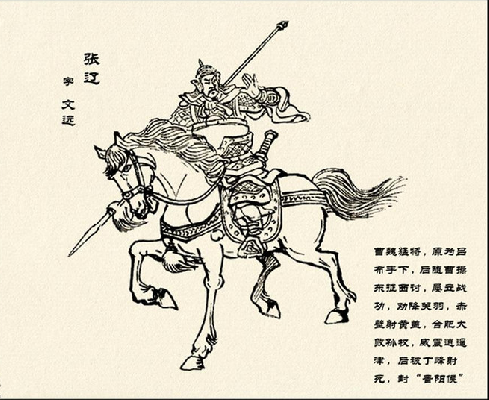 张辽
字 文远
曹魏猛将，原为吕
布手下，后随曹操
东征西讨，屡立战
功，劝降关羽，赤
壁射黄盖，合肥大
败孙权，威震逍遥
津，后被丁奉射
死，封“晋阳侯”